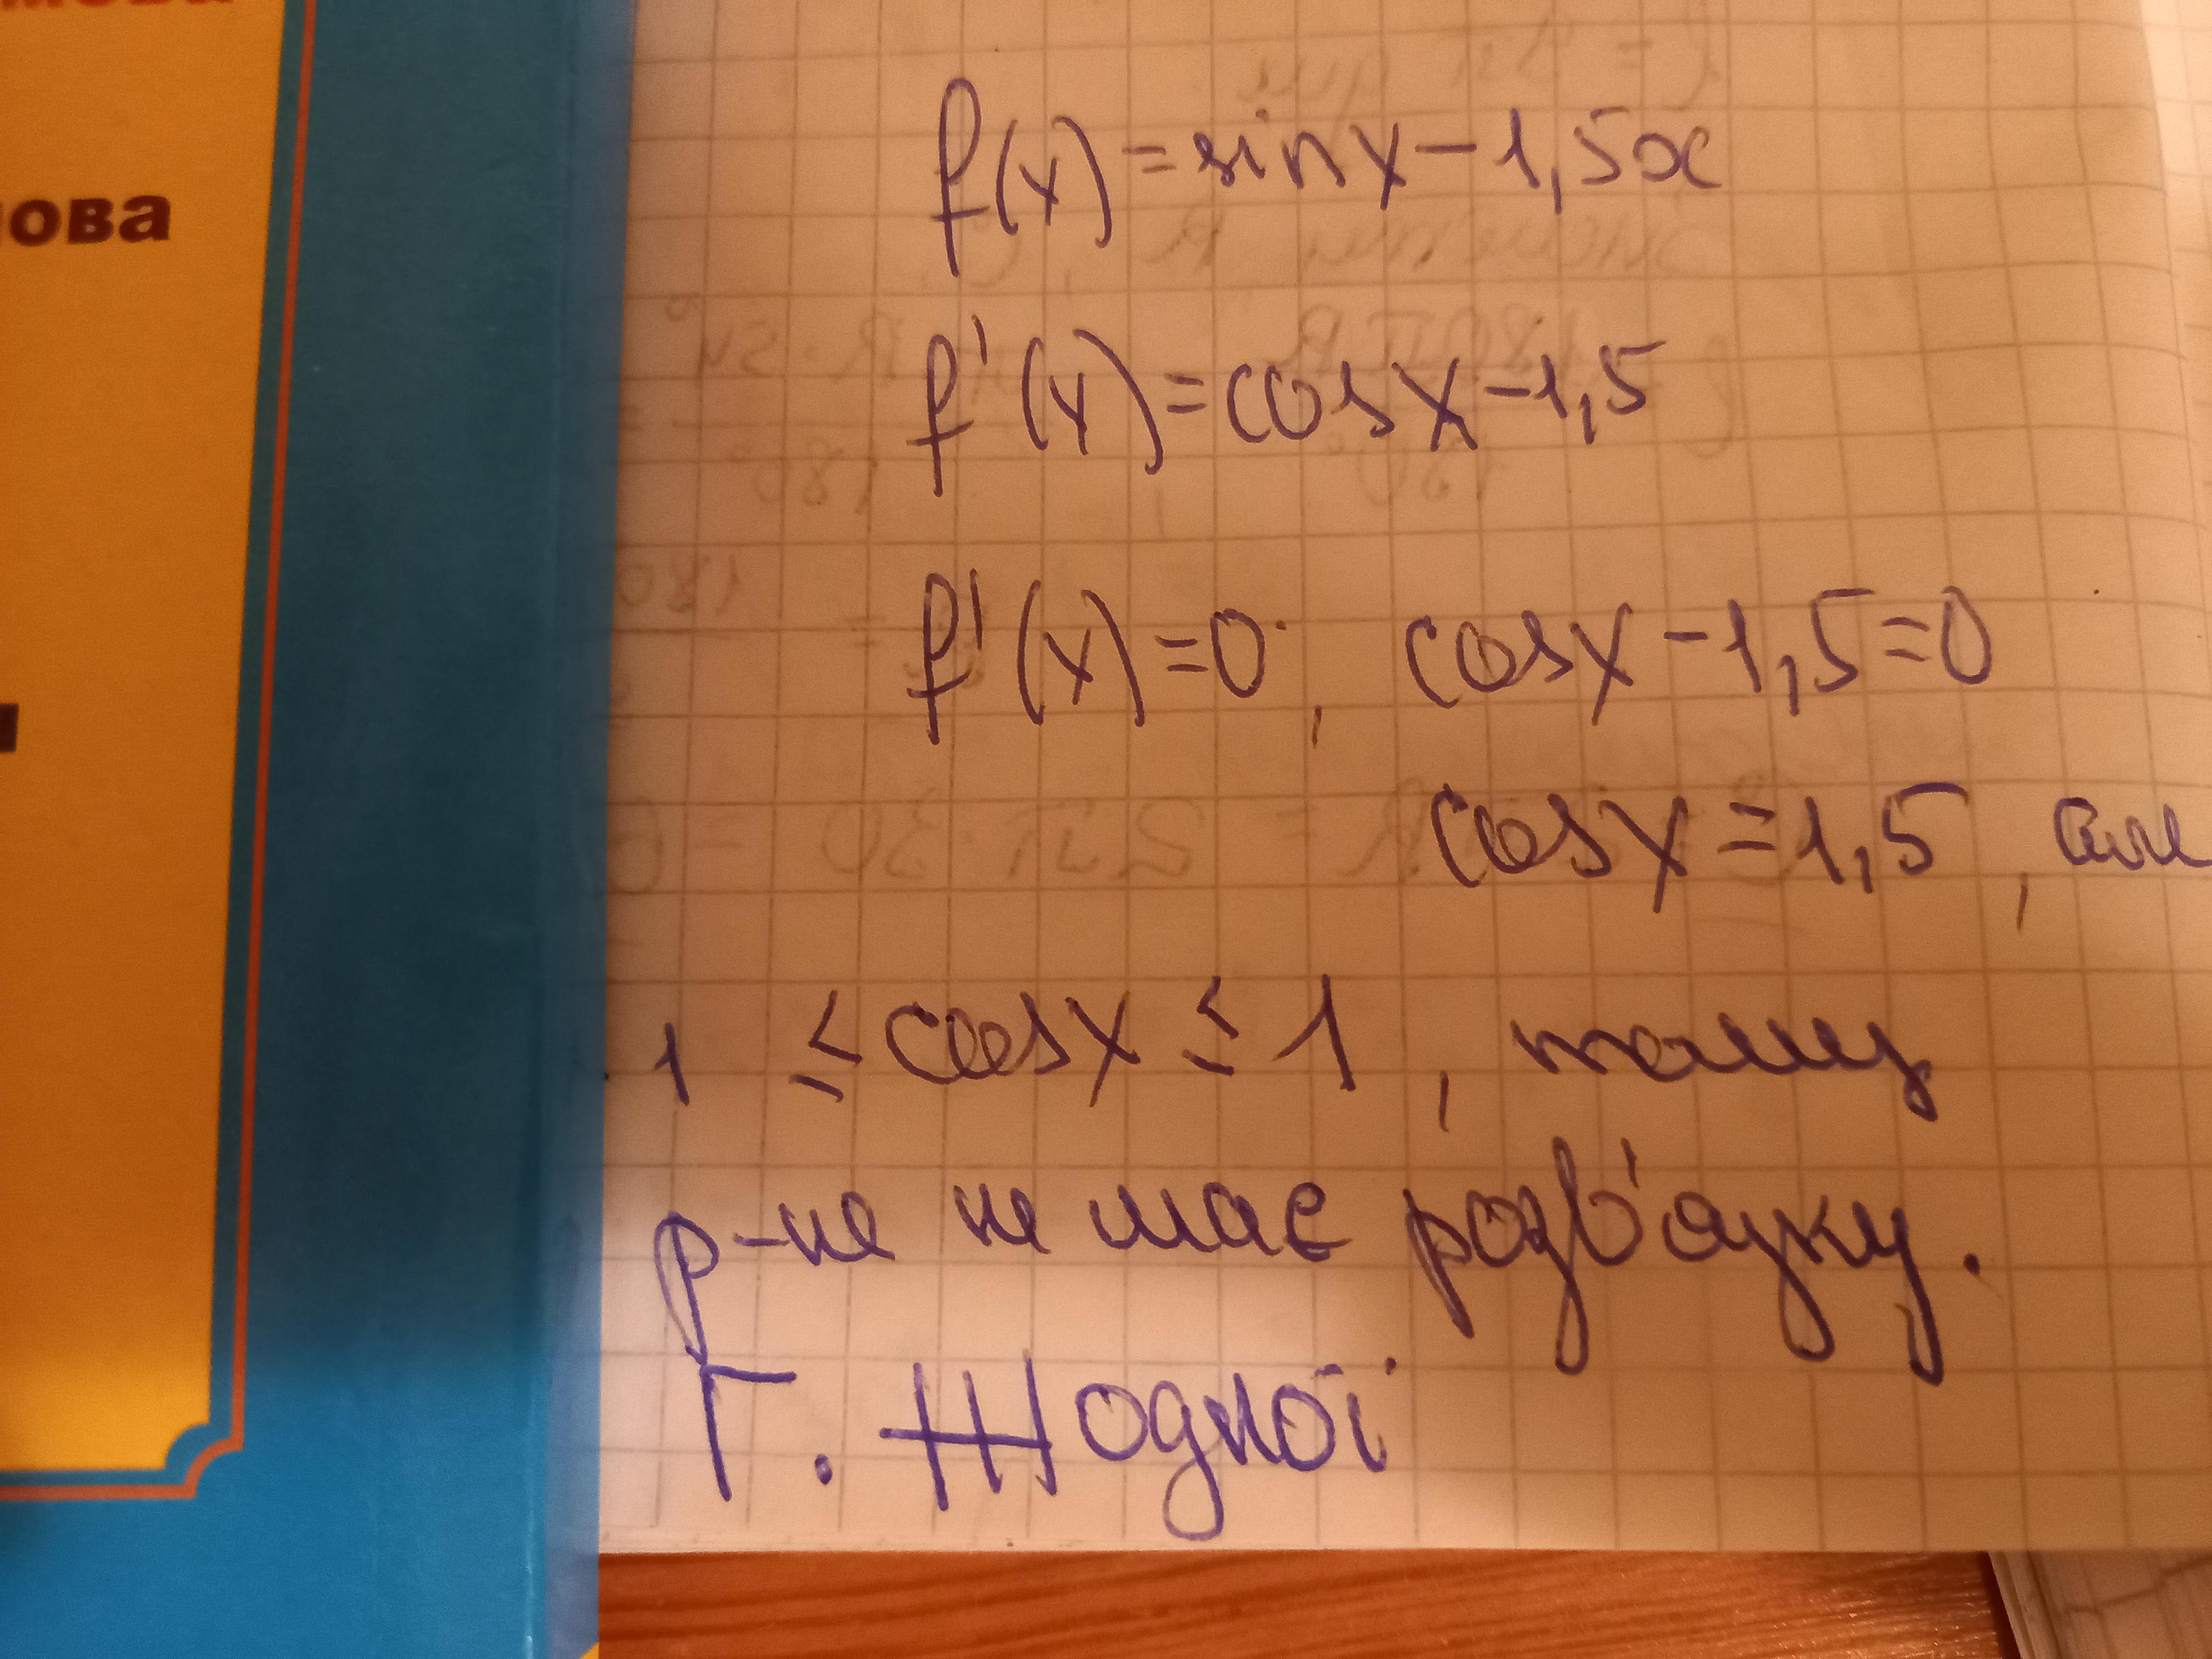 ова
f(x)=sinx-1,5x
f'(x)=cosx-1,5
f'(x)=0, cosx-1,5=0
cosx=1,5, але
1 ≤ cosx ≤ 1, тому
р-не не має розв'язку.
Г. Жодної